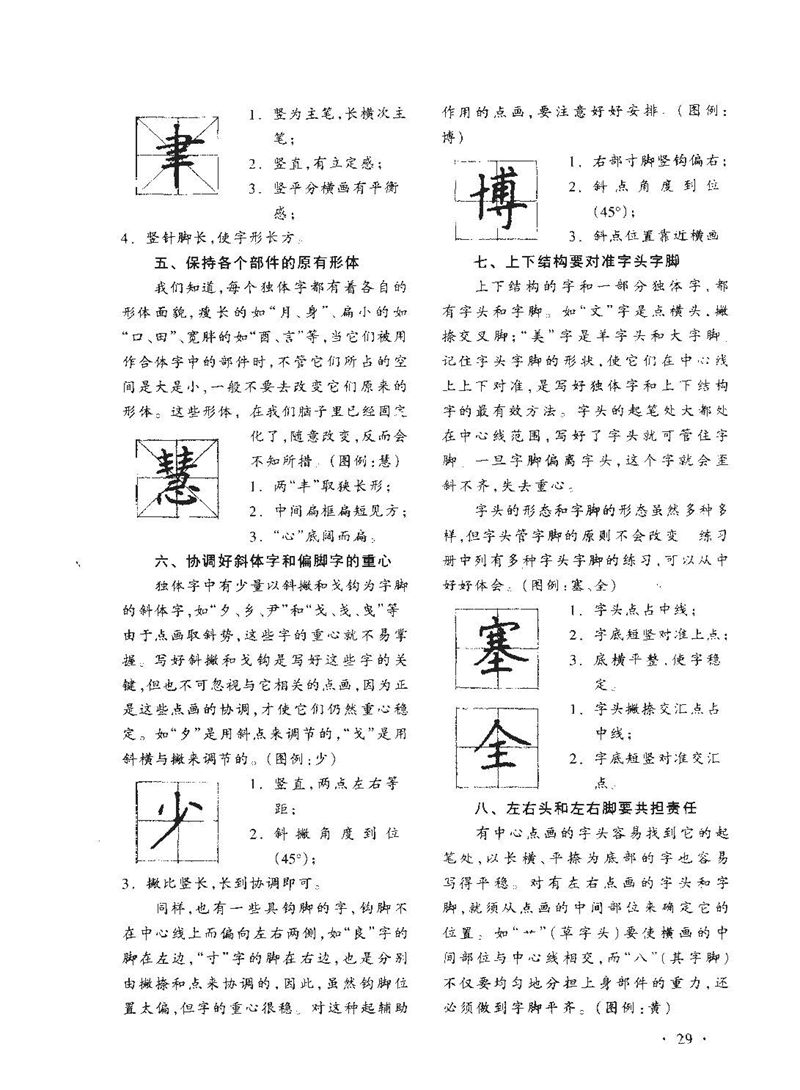 聿
1. 竖为主笔,长横次主
笔;
2. 竖直,有立定感;
3. 竖平分横画有平衡
感;
4. 竖针脚长,使字形长方。
五、保持各个部件的原有形体
我们知道,每个独体字都有着各自的
形体面貌,瘦长的如“月、身”、扁小的如
“口、田”、宽胖的如“酉、言”等,当它们被用
作合体字中的部件时,不管它们所占的空
间是大是小,一般不要去改变它们原来的
形体。这些形体,在我们脑子里已经固定
化了,随意改变,反而会
不知所措。(图例:慧)
慧
1. 两“丰”取狭长形;
2. 中间扁框扁短见方;
3. “心”底阔而扁。
六、协调好斜体字和偏脚字的重心
独体字中有少量以斜撇和戈钩为字脚
的斜体字,如“夕、乡、尹”和“戈、戋、曳”等
由于点画取斜势,这些字的重心就不易掌
握。写好斜撇和戈钩是写好这些字的关
键,但也不可忽视与它相关的点画,因为正
是这些点画的协调,才使它们仍然重心稳
定。如“夕”是用斜点来调节的,“戈”是用
斜横与撇来调节的。(图例:少)
少
1. 竖直,两点左右等
距;
2. 斜撇角度到位
(45°);
3. 撇比竖长,长到协调即可。
同样,也有一些具钩脚的字,钩脚不
在中心线上而偏向左右两侧,如“良”字的
脚在左边,“寸”字的脚在右边,也是分别
由撇捺和点来协调的,因此,虽然钩脚位
置太偏,但字的重心很稳。对这种起辅助
作用的点画,要注意好好安排。(图例:
博)
博
1. 右部寸脚竖钩偏右;
2. 斜点角度到位
(45°);
3. 斜点位置靠近横画
七、上下结构要对准字头字脚
上下结构的字和一部分独体字,都
有字头和字脚。如“文”字是点横头,撇
捺交叉脚;“美”字是羊字头和大字脚
记住字头字脚的形状,使它们在中心线
上上下对准,是写好独体字和上下结构
字的最有效方法。字头的起笔处大都处
在中心线范围,写好了字头就可管住字
脚 一旦字脚偏离字头,这个字就会歪
斜不齐,失去重心。
字头的形态和字脚的形态虽然多种多
样,但字头管字脚的原则不会改变 练习
册中列有多种字头字脚的练习,可以从中
好好体会。(图例:塞、全)
塞
1. 字头点占中线;
2. 字底短竖对准上点;
3. 底横平整,使字稳
定。
全
1. 字头撇捺交汇点占
中线;
2. 字底短竖对准交汇
点。
八、左右头和左右脚要共担责任
有中心点画的字头容易找到它的起
笔处,以长横、平捺为底部的字也容易
写得平稳。对有左右点画的字头和字
脚,就须从点画的中间部位来确定它的
位置。如“艹”(草字头)要使横画的中
间部位与中心线相交,而“八”(其字脚)
不仅要均匀地分担上身部件的重力,还
必须做到字脚平齐。(图例:黄)
· 29 ·